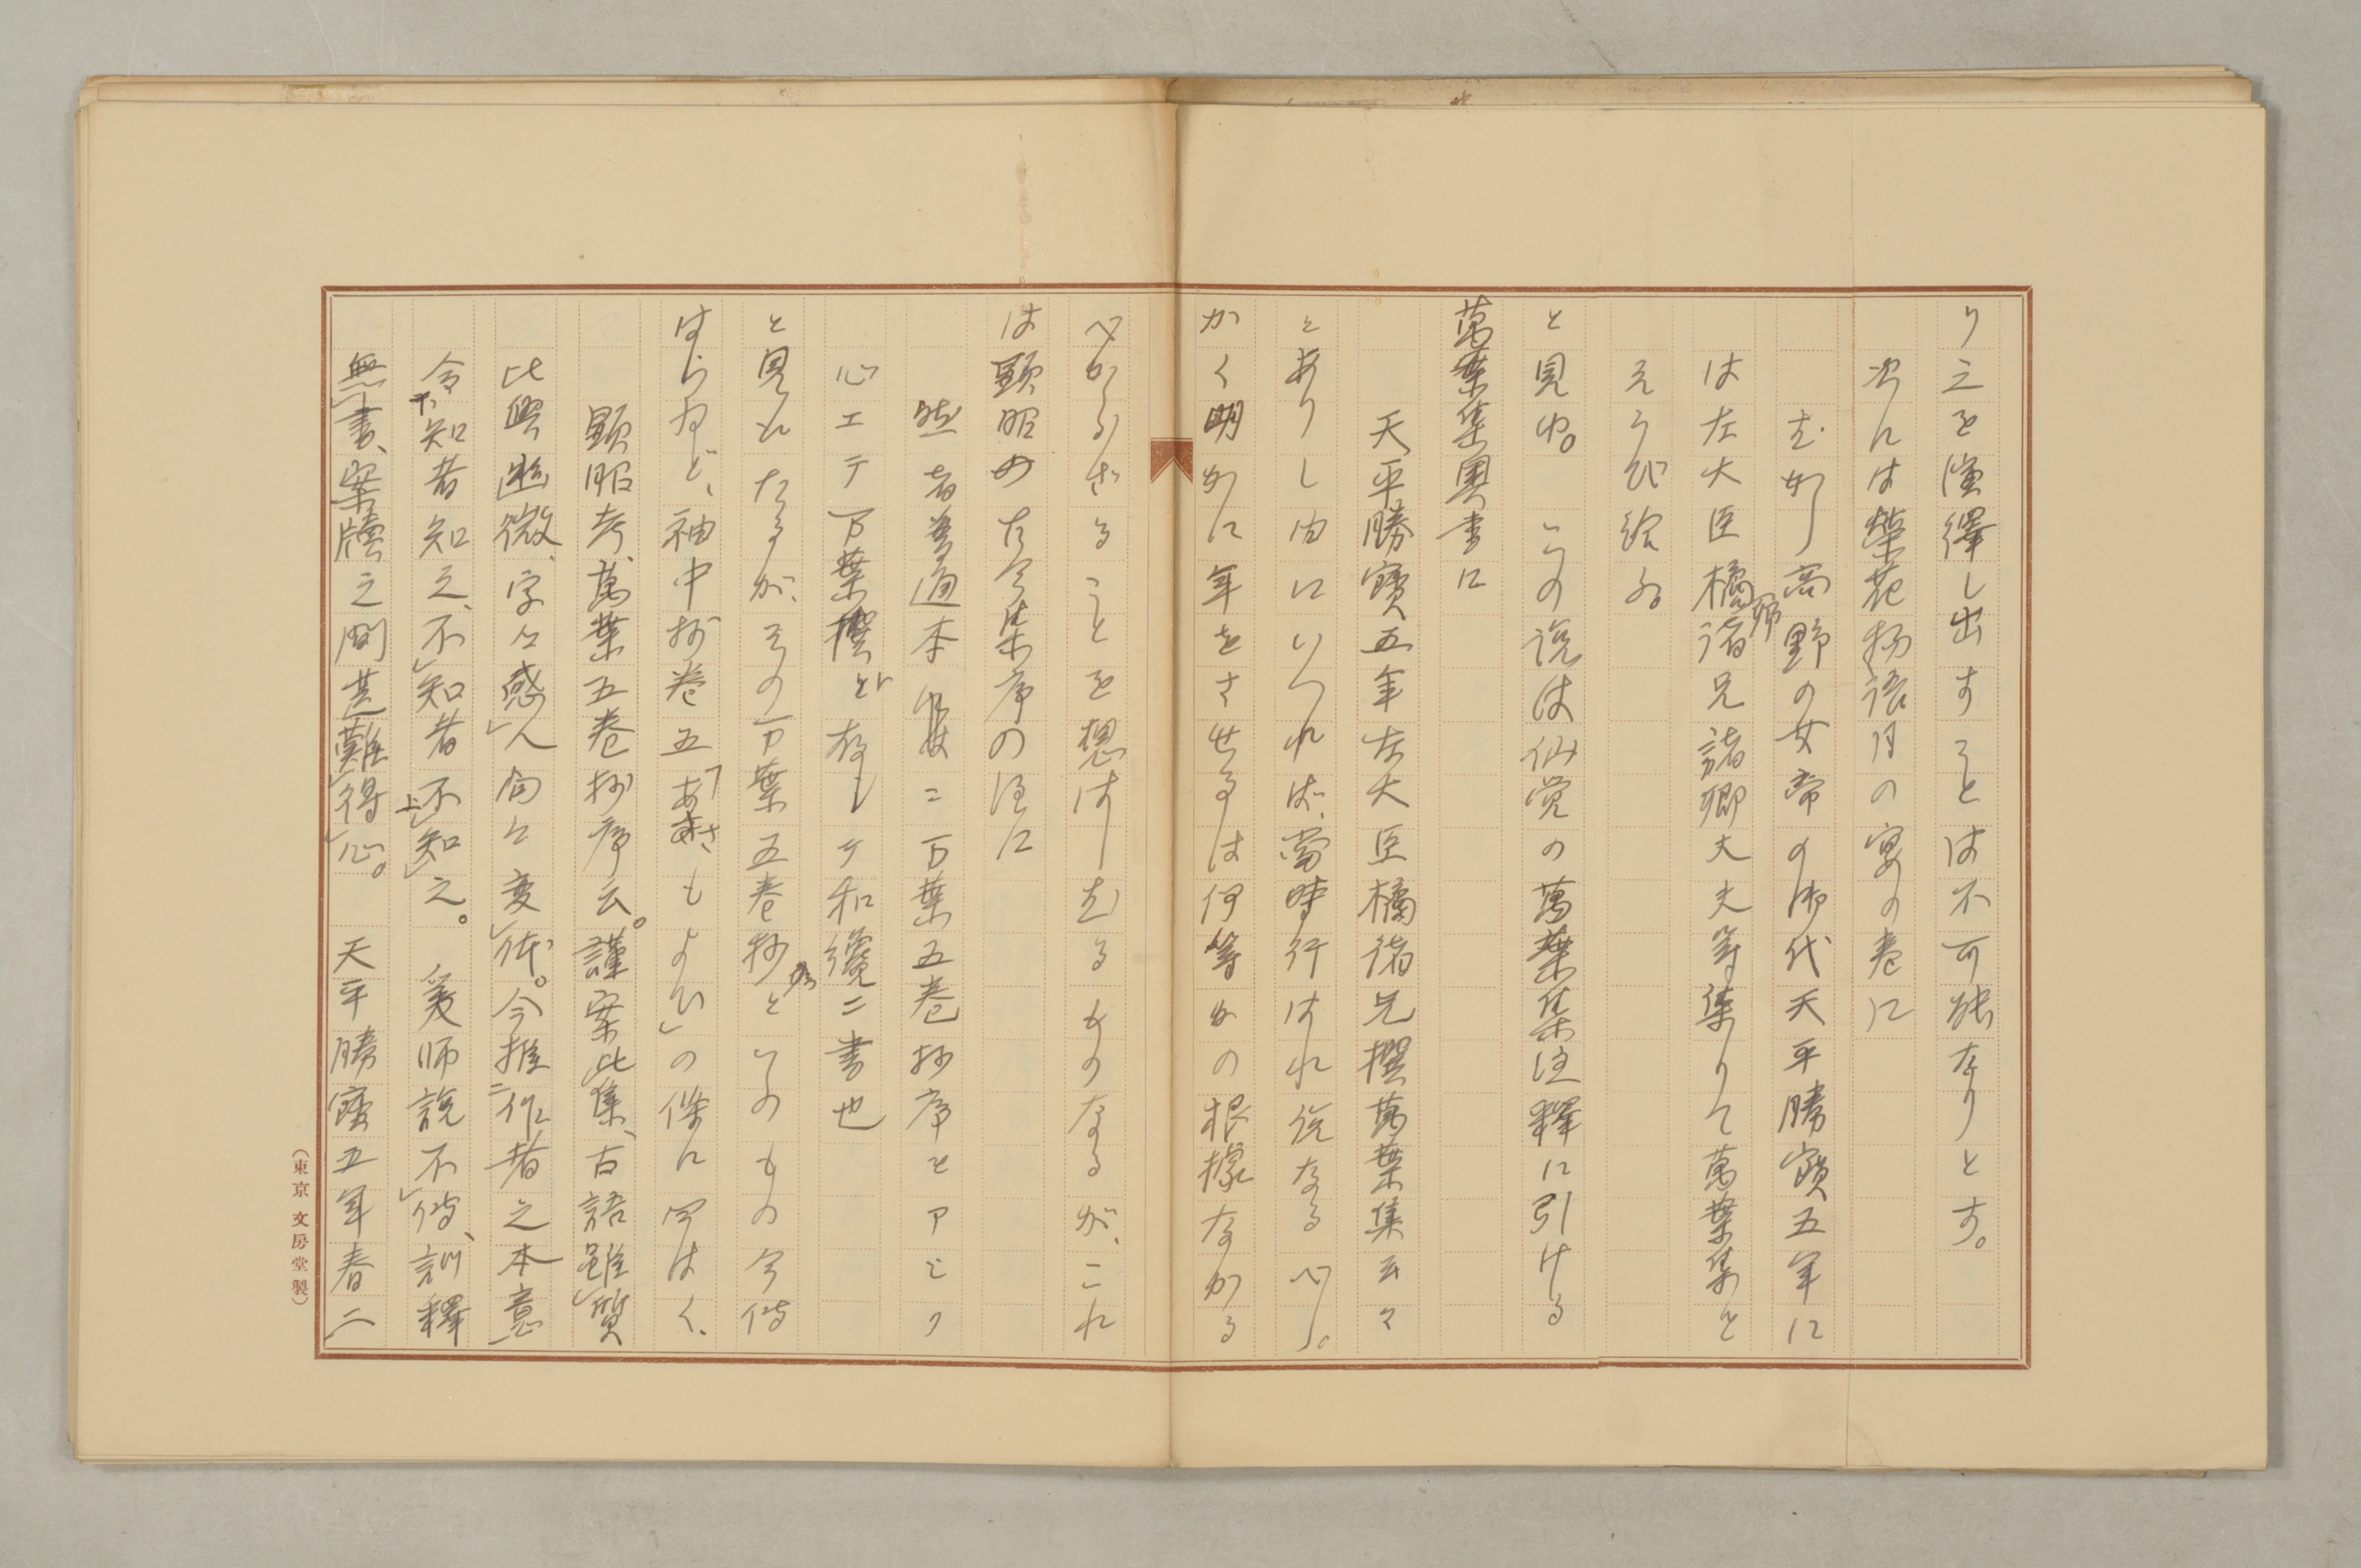 り之を演繹し出すことは不可能なりとす。
次には榮花物語月の宴の巻に
むかし高野の女帝の御代天平勝寳五年に
は左大臣橘諸兄諸卿大夫等集りて萬葉集を
えらび給ふ
と見ゆ。この説は仙覚の萬葉集注釋に引ける
萬葉集奥書に
天平勝寳五年左大臣橘諸兄撰萬葉集云々
とありし由にいへれば、當時行はれ説なるべし。
かく明かに年をさせるは何等かの根據なかる
べからざることを想はしむるものなるが、これ
は顕昭の古今集序の注に
然者普通本集ニ万葉五巻抄序とアヒク
心エテ万葉撰ど存シテ和纔ニ書也
と見えたるが、その万葉五巻抄といふもの今傳
はらねど、袖中抄巻五「あさもよひ」の條に同はく、
顕昭考、萬葉五巻抄序云。謹案此集、古語雖質
比興幽微、字々感人向々変体。今推作者之本意
令知者知之、不知者不知之。爰師説不傳、訓釋
無書、案牘之間甚難得心。 天平勝寳五年春二
(東京 文房堂製)